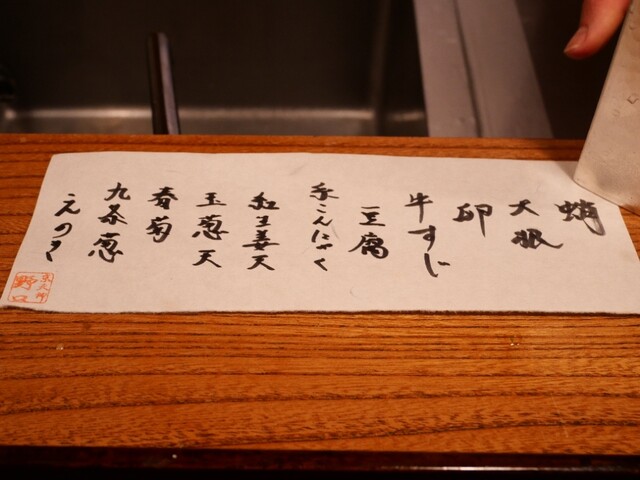 蛸
大根
卵
牛すじ
豆腐
糸こんにゃく
紅生姜天
玉葱天
春菊
九条葱
えのき
野口